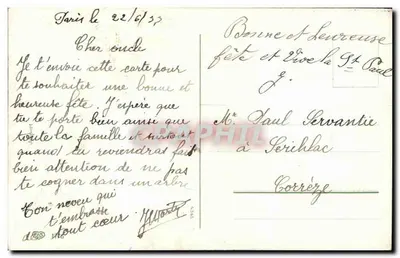 Paris le 22/6/37
Cher oncle
Je t'envoie cette carte pour
te souhaiter une bonne et
heureuse fête. J'espère que
tu te porte bien ainsi que
toute la famille et
quand tu reviendras fait
bien attention de ne pas
te cogner dans un arbre
Ton neveu qui
t'embrasse
tout cœur
Bonne et heureuse
fête et Vive la St Paul
J.
Mr Paul Servantie
à
Corrèze